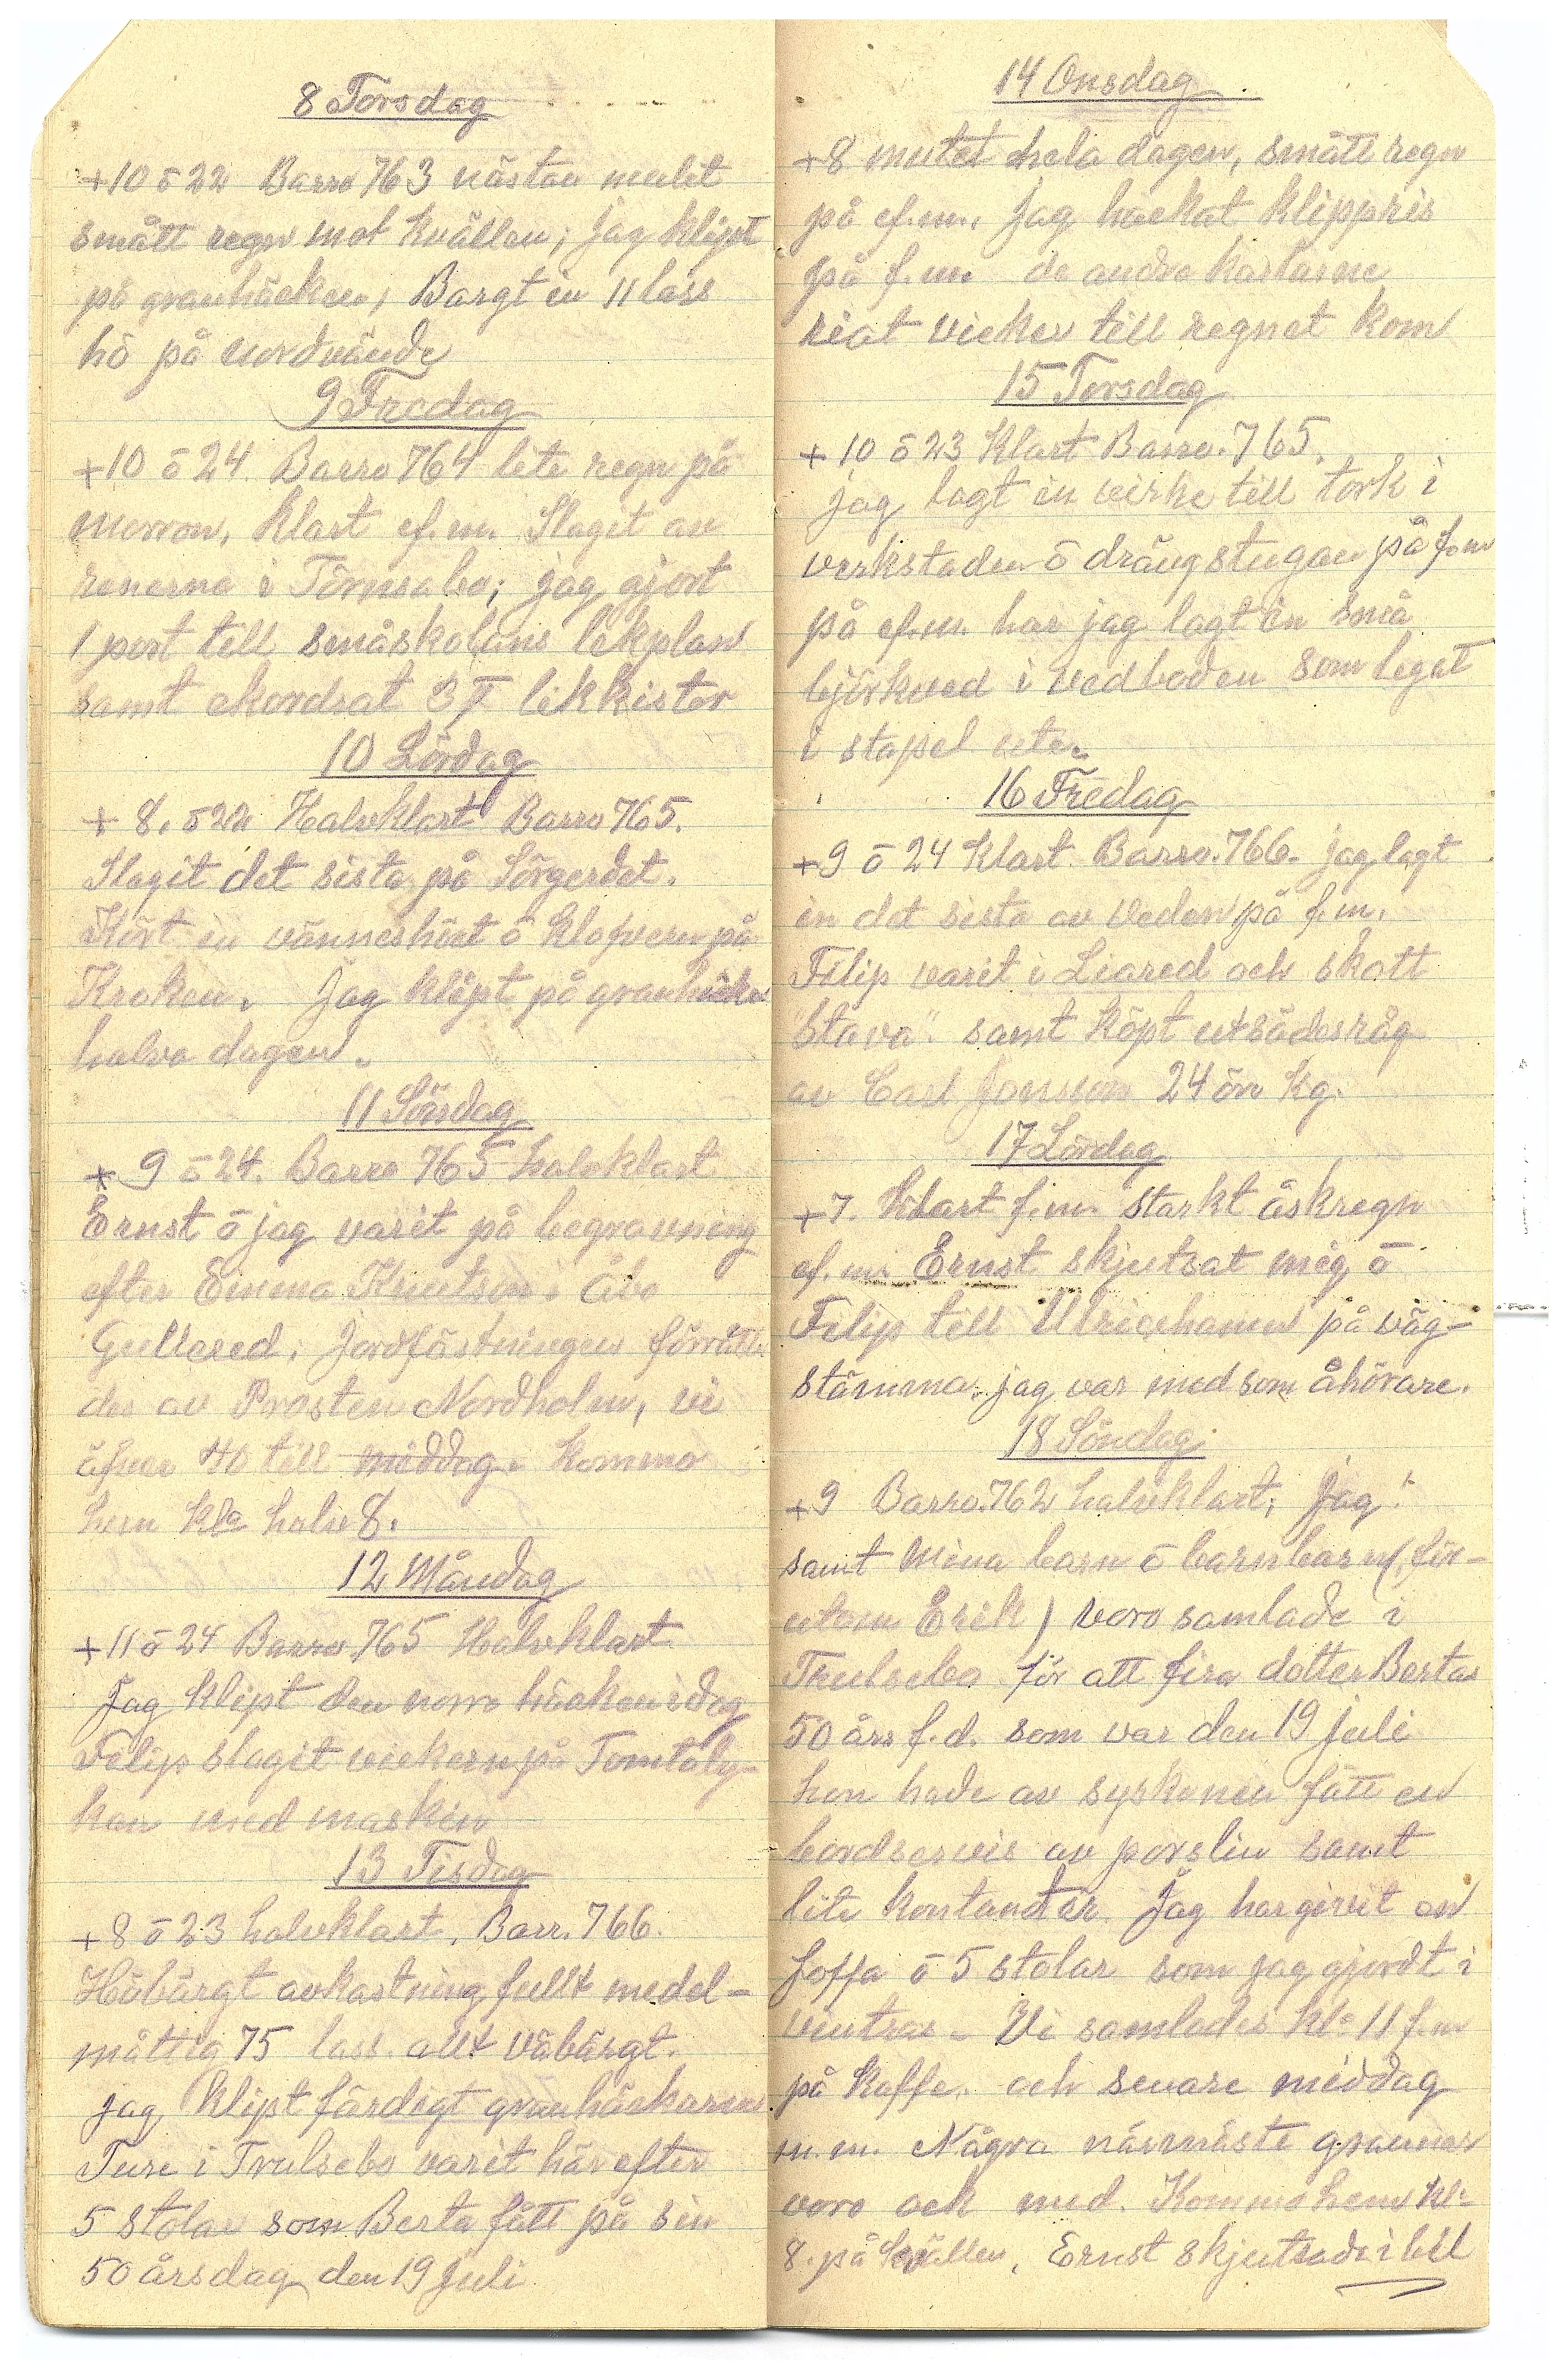 8 Torsdag
+10 ō 22 Barro 763 nästan mulet
smått regn mot kvällen; jag klipt
på granhäcken; Bargt in 11 lass
hö på nordvände
9 Fredag
+10 ō 24. Barro 764 lite regn på
morron, klart ef.m. Slagit av
renerna i Törnsabo; jag gjort
1 port till småskolans lekplan
samt ekordrat 3 likkistor
10 Lördag
+ 8. ō 22 Halvklart Barro 765.
Slagit det sista på Sörgerdet.
Kört in vänneshöet ō klofvern på
Kroken. Jag klipt på granhäcken
halva dagen.
11 Söndag
+ 9 ō 24. Barro 765 halvklart
Ernst ō jag varit på begravning
efter Emma Knutson i Åbo
Gullered. Jordfästningen förrätta
des av Prosten Nordholm, vi
äfver 40 till middag. Kommo
hem kl. halv 8.
12 Måndag
+11 ō 24 Barro 765 Halvklart
Jag klipt den norra häcken idag
Filip slagit vickern på Tomtaly-
kan med maskin
13 Tisdag
+8 ō 23 halvklart. Barr. 766.
Höbärgt avkastning fullt medel-
måttig 75 lass. allt välbärgt.
jag klipt färdigt granhäckarna
Ture i Trulsebo varit här efter
5 stolar som Berta fått på sin
50 årsdag den 19 Juli
14 Onsdag.
+8 mulet hela dagen, smått regn
på ef.m. Jag hackat klippris
på f.m. de andra karlarne
riat vicker till regnet kom
15 Torsdag
+ 10 ō 23 Klart Barro. 765.
jag lagt in virke till tork i
verkstaden ō drängstugan på f.m
på ef.m. har jag lagt in små
björkved i vedboden som legat
i stapel ute.
16 Fredag
+9 ō 24 Klart. Barro. 766. jag lagt
in det sista av veden på f.m.
Filip varit i Liared och skött
"Stava". samt köpt utsädesråg
av Carl Jonsson 24 öre kg.
17 Lördag
+7. Klart f.m. starkt åskregn
ef.m. Ernst skjutsat mig ō
Filip till Ulricehamn på väg-
stämma. jag var med som åhörare.
18 Söndag
+9 Barro. 762 halvklart; Jag
samt mina barn ō barnbarn (för-
utom Erik) voro samlade i
Trulsebo för att fira dotter Bertas
50 års f.d. som var den 19 juli
hon hade av syskonen fått en
bordservis av porslin samt
lite kontanter. Jag har givit en
soffa ō 5 stolar som jag gjordt i
vintras. Vi samlades kl. 11 f.m
på kaffe. och senare middag
m.m. Några närmäste grannar
voro ock med. Kommo hem kl.
8. på kvällen. Ernst skjutsade i bil